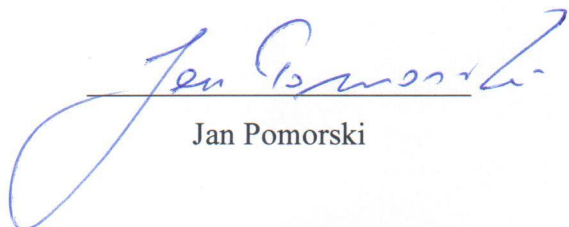 Jan Pomorski
Jan Pomorski